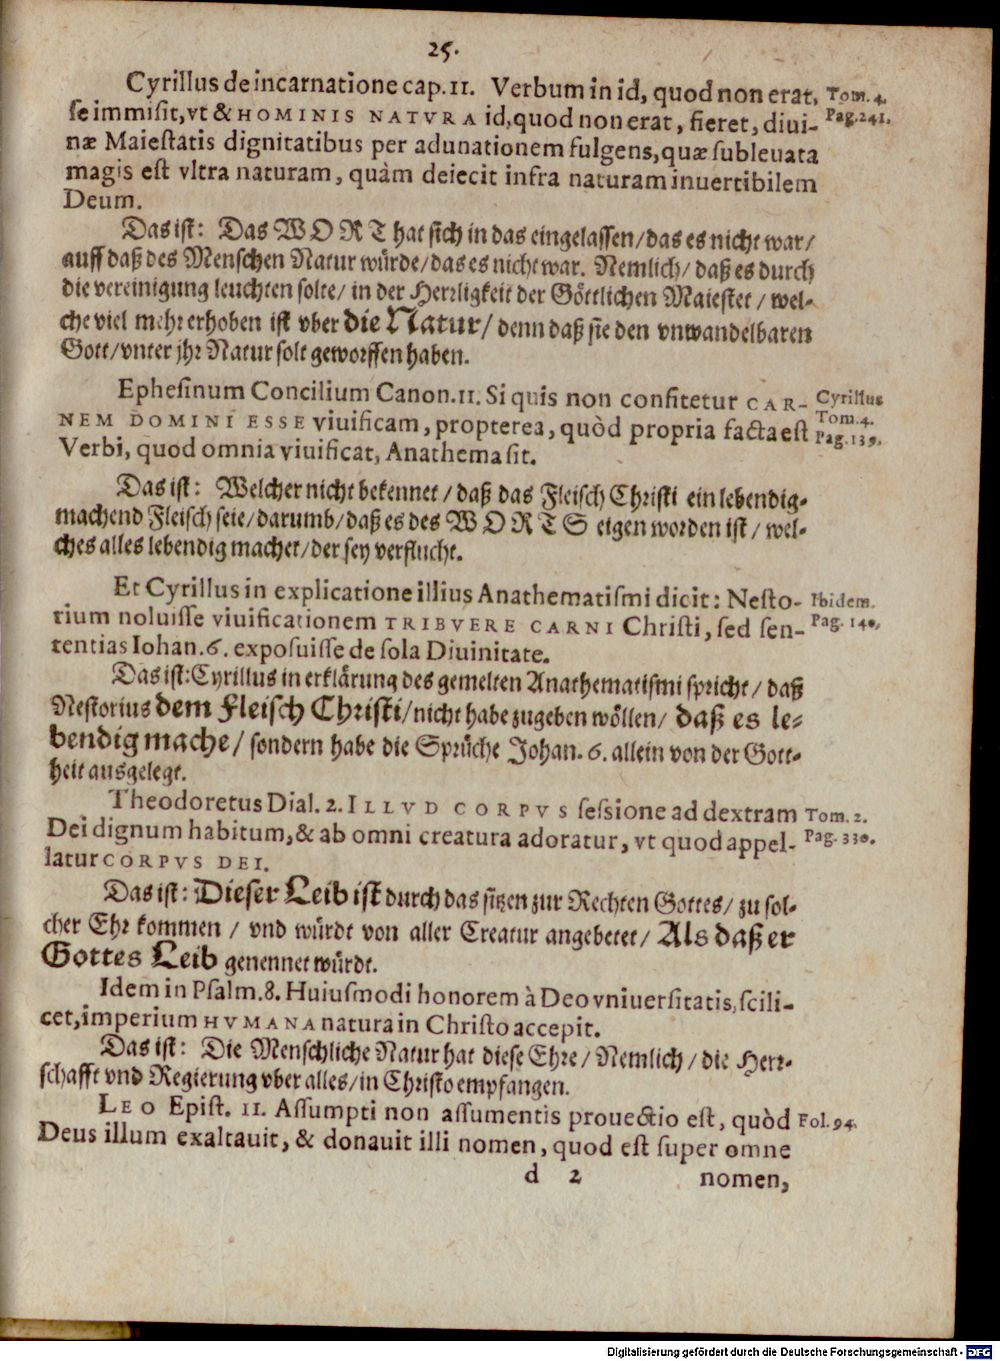 25.
Cyrillus de incarnatione cap. 11. Verbum in id, quod non erat, Tom. 4.
se immisit, vt & HOMINIS NATVRA id, quod non erat, fieret, diui- Pag. 241.
næ Maiestatis dignitatibus per adunationem fulgens, quæ subleuata
magis est vltra naturam, quàm deiecit infra naturam inuertibilem
Deum.
Das ist: Das WORT hat sich in das eingelassen/ das es nicht war/
auff daß des Menschen Natur würde/ das es nicht war. Nemlich/ daß es durch
die vereinigung leuchten solte/ in der Herrligkeit der Göttlichen Maiestet/ wel-
che viel mehr erhoben ist vber die Natur/ denn daß sie den vnwandelbaren
Gott/ vnter jhr Natur solt geworffen haben.
Ephesinum Concilium Canon. 11. Si quis non confitetur CAR- Cyrillus
NEM DOMINI ESSE viuificam, propterea, quòd propria facta est Tom. 4.
Verbi, quod omnia viuificat, Anathema sit. Pag. 139.
Das ist: Welcher nicht bekennet/ daß das Fleisch Christi ein lebendig-
machend Fleisch seie/ darumb/ daß es des WORTS eigen worden ist/ wel-
ches alles lebendig machet/ der sey verflucht.
Et Cyrillus in explicatione illius Anathematismi dicit: Nesto- Ibidem.
rium noluisse viuificationem TRIBVERE CARNI Christi, sed sen- Pag. 140.
tentias Iohan. 6. exposuisse de sola Diuinitate.
Das ist: Cyrillus in erklärung des gemelten Anathematismi spricht/ daß
Nestorius dem Fleisch Christi/ nicht habe zugeben wöllen/ daß es le-
bendig mache/ sondern habe die Sprüche Johan. 6. allein von der Gott-
heit ausgelegt.
Theodoretus Dial. 2. ILLVD CORPVS sessione ad dextram Tom. 2.
Dei dignum habitum, & ab omni creatura adoratur, vt quod appel- Pag. 330.
latur CORPVS DEI.
Das ist: Dieser Leib ist durch das sitzen zur Rechten Gottes/ zu sol-
cher Ehr kommen/ vnd würdt von aller Creatur angebetet/ Als daß er
Gottes Leib genennet würdt.
Idem in Psalm. 8. Huiusmodi honorem à Deo vniuersitatis, scili-
cet, imperium HVMANA natura in Christo accepit.
Das ist: Die Menschliche Natur hat diese Ehre/ Nemlich/ die Herr-
schafft vnd Regierung vber alles/ in Christo empfangen.
LEO Epist. 11. Assumpti non assumentis prouectio est, quòd Fol. 94.
Deus illum exaltauit, & donauit illi nomen, quod est super omne
d 2 nomen,
Digitalisierung gefördert durch die Deutsche Forschungsgemeinschaft - DFG